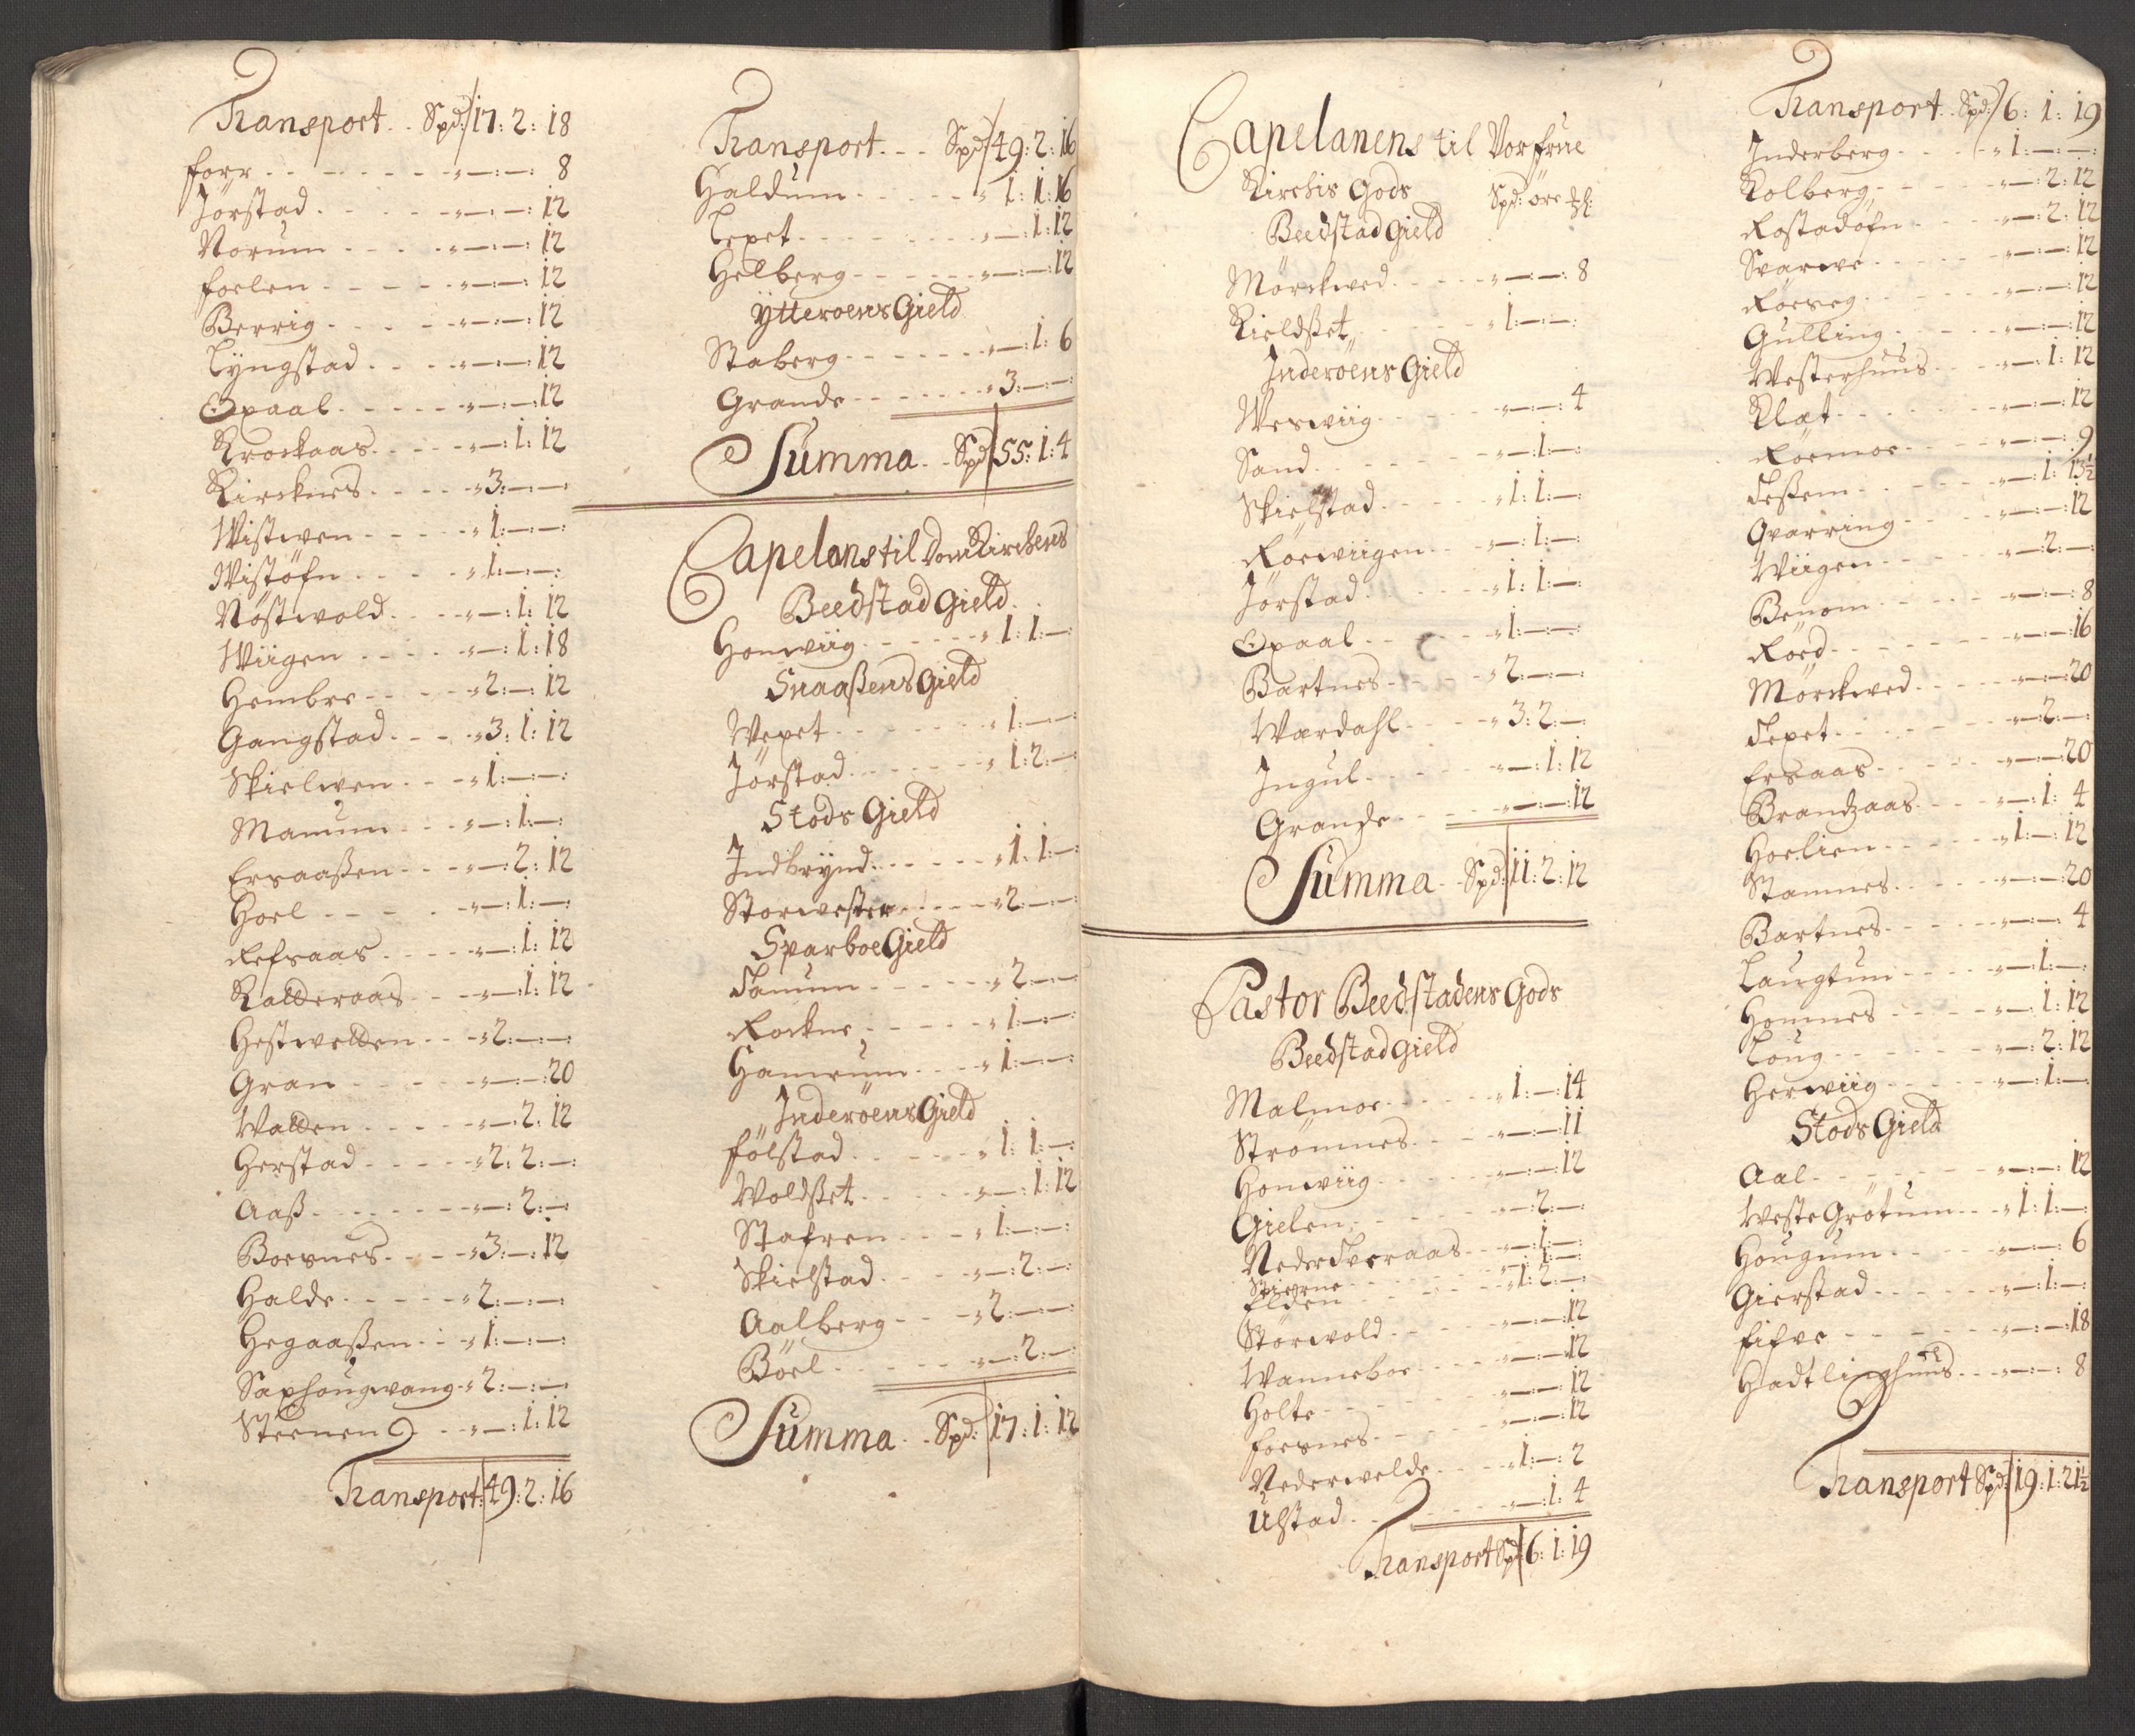 Transport .. Spd: 17: 2: 18
forr - - - - - - - „—:—: 8
Jörstad - - - - - „—:—: 12
Norum - - - - „—:—: 12
foelen - - - - - „—:—: 12
Berrig - - - - - „—:—: 12
Lÿngstad - - - - „—:—: 12
Opaal - - - - - „—:—: 12
Krockaas - - - - „—: 1: 12
Kircknes - - - - „3:—:—
Wistwen - - - - „1:—:—
Wistöfn - - - - „1:—:—
Nöstwold - - - - „—: 1: 12
Wiigen - - - - „—: 1: 18
Hembre - - - - „2:—: 12
Gangstad - - - „3: 1: 12
Skielwen - - - „1:—:—
Manum - - - „—: 1:—
Ersaaßen - - - „—: 2: 12
Hoel - - - - - „—: 1:—
Refsaas - - - - „—: 1: 12
Kalderaas - - - „—: 1: 12
Hestwelden - - - „2:—:—
Gran - - - - - „—:—: 20
Walden - - - - - „—: 2: 12
Herstad - - - - „2: 2:—
Aaß - - - - - - „—: 2:—
Boesnes - - - - „3:—: 12
Halde - - - - - „2:—:—
Hegaaßen - - - „1:—:—
Saxhougwang - „2:—:—
Steenen - - „—: 1: 12
Transport: 49: 2: 16
Transport - - - Spd: 49: 2: 16
Haldum - - - - - „1: 1: 16
Lexet - - - - - - „—: 1: 12
Helberg - - - - - „—:—: 12
Ÿtteroens Gield
Staberg - - - - - „—: 1: 6
Grande - - - - - „3:—:—
Summa - - Spd: 55: 1: 4
Capelans til Dom Kirchens
Beedstad Gield
Honwiig - - - - - „1: 1:—
Snaaßens Gield
Wexet - - - - - - „1:—:—
Jörstad - - - - - „1: 2:—
Stods Gield
Indbrÿnd - - - - „1: 1:—
Storwester - - - - „2:—:—
Sparboe Gield
Tanum - - - - - „2:—:—
Rockne - - - - - „1:—:—
Hamrum - - - - „1:—:—
Inderöens Gield
fölstad - - - - - „1: 1:—
Woldßet - - - - - „—: 1: 12
Stafren - - - - „1:—:—
Skielstad - - - - „—: 2:—
Aalberg - - - „2:—:—
Böel - - - - - „—: 2:—
Summa - - Spd: 17: 1: 12
Capelanens til Vorfrue
Kirchis Gods Spd: öre
Beedstad Gield
Mörckwed - - - - „—:—: 8
Kieldßet - - - - - „1:—:—
Inderöens Gield
Weswiig - - - - „—:—: 4
Sand - - - - - - „—: 1:—
Skielstad - - - - „1: 1:—
Roewiigen - - „—: 1:—
Jörstad - - - - - „1: 1:—
Opaal - - - - - „1:—:—
Bartnes - - - - „2:—:—
Wærdahl - - - „3: 2:—
Ingul - - - - - „—: 1: 12
Grande - - - - „—:—: 12
Summa - - Spd: 11: 2: 12
Pastor Beedstadens Gods
Beedstad Gield
Malmoe - - - - - „1:—: 14
Strömnes - - - - „—:—: 11
Honwiig - - - - - „—:—: 12
Gielen - - - - - „—: 2:—
Neder Tveraas - - „—: 1:—
Stierne - - - - - „—: 1:—
Elden - - - - - - „1: 2:—
Störwold - - - - - „—:—: 12
Wanneboe - - - - „—:—: 12
Holte - - - - - - „—:—: 12
foesnes - - - - - „—:—: 12
Nederwelde - - - „1:—: 2
Ulstad - - - - - „—: 1: 4
Transport Spd: 6: 1: 19
Transport - Spd: 6: 1: 19
Inderberg - - - - „1:—:—
Kolberg - - - - - „—: 2: 12
Rostadöfn - - - - „—: 2: 12
Svarwe - - - - - „—:—: 12
Röeseg - - - - - „—:—: 12
Gulling - - - - - „—:—: 12
Westerhuus - - - „—: 1: 12
Klæt - - - - - - „—:—: 12
Röemoe - - - - „—:—: 9
Teßem - - - - - „—: 1: 13½
Qvarring - - - - „—:—: 12
Wiigen - - - - - „—: 2:—
Benom - - - - - „—:—: 8
Röed - - - - - - „—:—: 16
Mörckwed - - - - „—:—: 20
Texet - - - - - - „—: 2:—
Ersaas - - - - - „—:—: 20
Brandzaas - - - - „—: 1: 4
Hoelien - - - - - „1:—: 12
Stamnes - - - - - „—:—: 20
Bartnes - - - - - „—:—: 4
Laugtun - - - - „—: 1:—
Homnes - - - - - „—: 1: 12
Loug - - - - - - „—: 2: 12
Herwiig - - - - - „—: 1:—
Stods Gield
Aal - - - - - - „—:—: 12
Weste Grötum - - „1: 1:—
Hougum - - - - - „—:—: 6
Gierstad - - - - - „—: 1:—
fifve - - - - - - „—:—: 18
Hadtlinghuus - - - „—:—: 8
Transport Spd: 19: 1: 21½